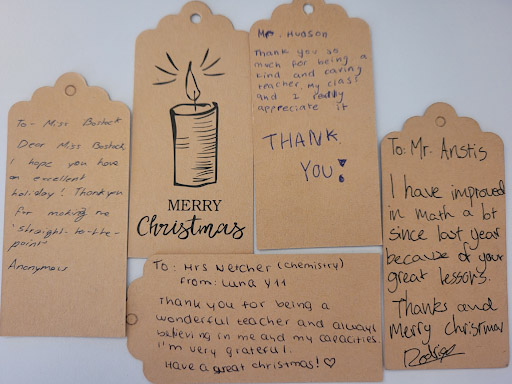 To - Miss Bostock
Dear Miss Bostock,
I hope you have
an excellent
holiday! Thankyou
for making me
'straight-to-the-
point'
Anonymous
MERRY
Christmas
Mr. Hudson
Thank you so
much for being a
kind and caring
teacher. My class
and I really
appreciate it
THANK
YOU!
To: Mrs Netcher (Chemistry)
From: Luna Y11
Thank you for being a
wonderful teacher and always
believing in me and my capacities
I'm very grateful.
Have a great christmas! ♡
To: Mr. Anstis
I have improved
in math a bt
since last year
because of your
great lessons.
Thanks and
Merry Christmas
Rodrigo